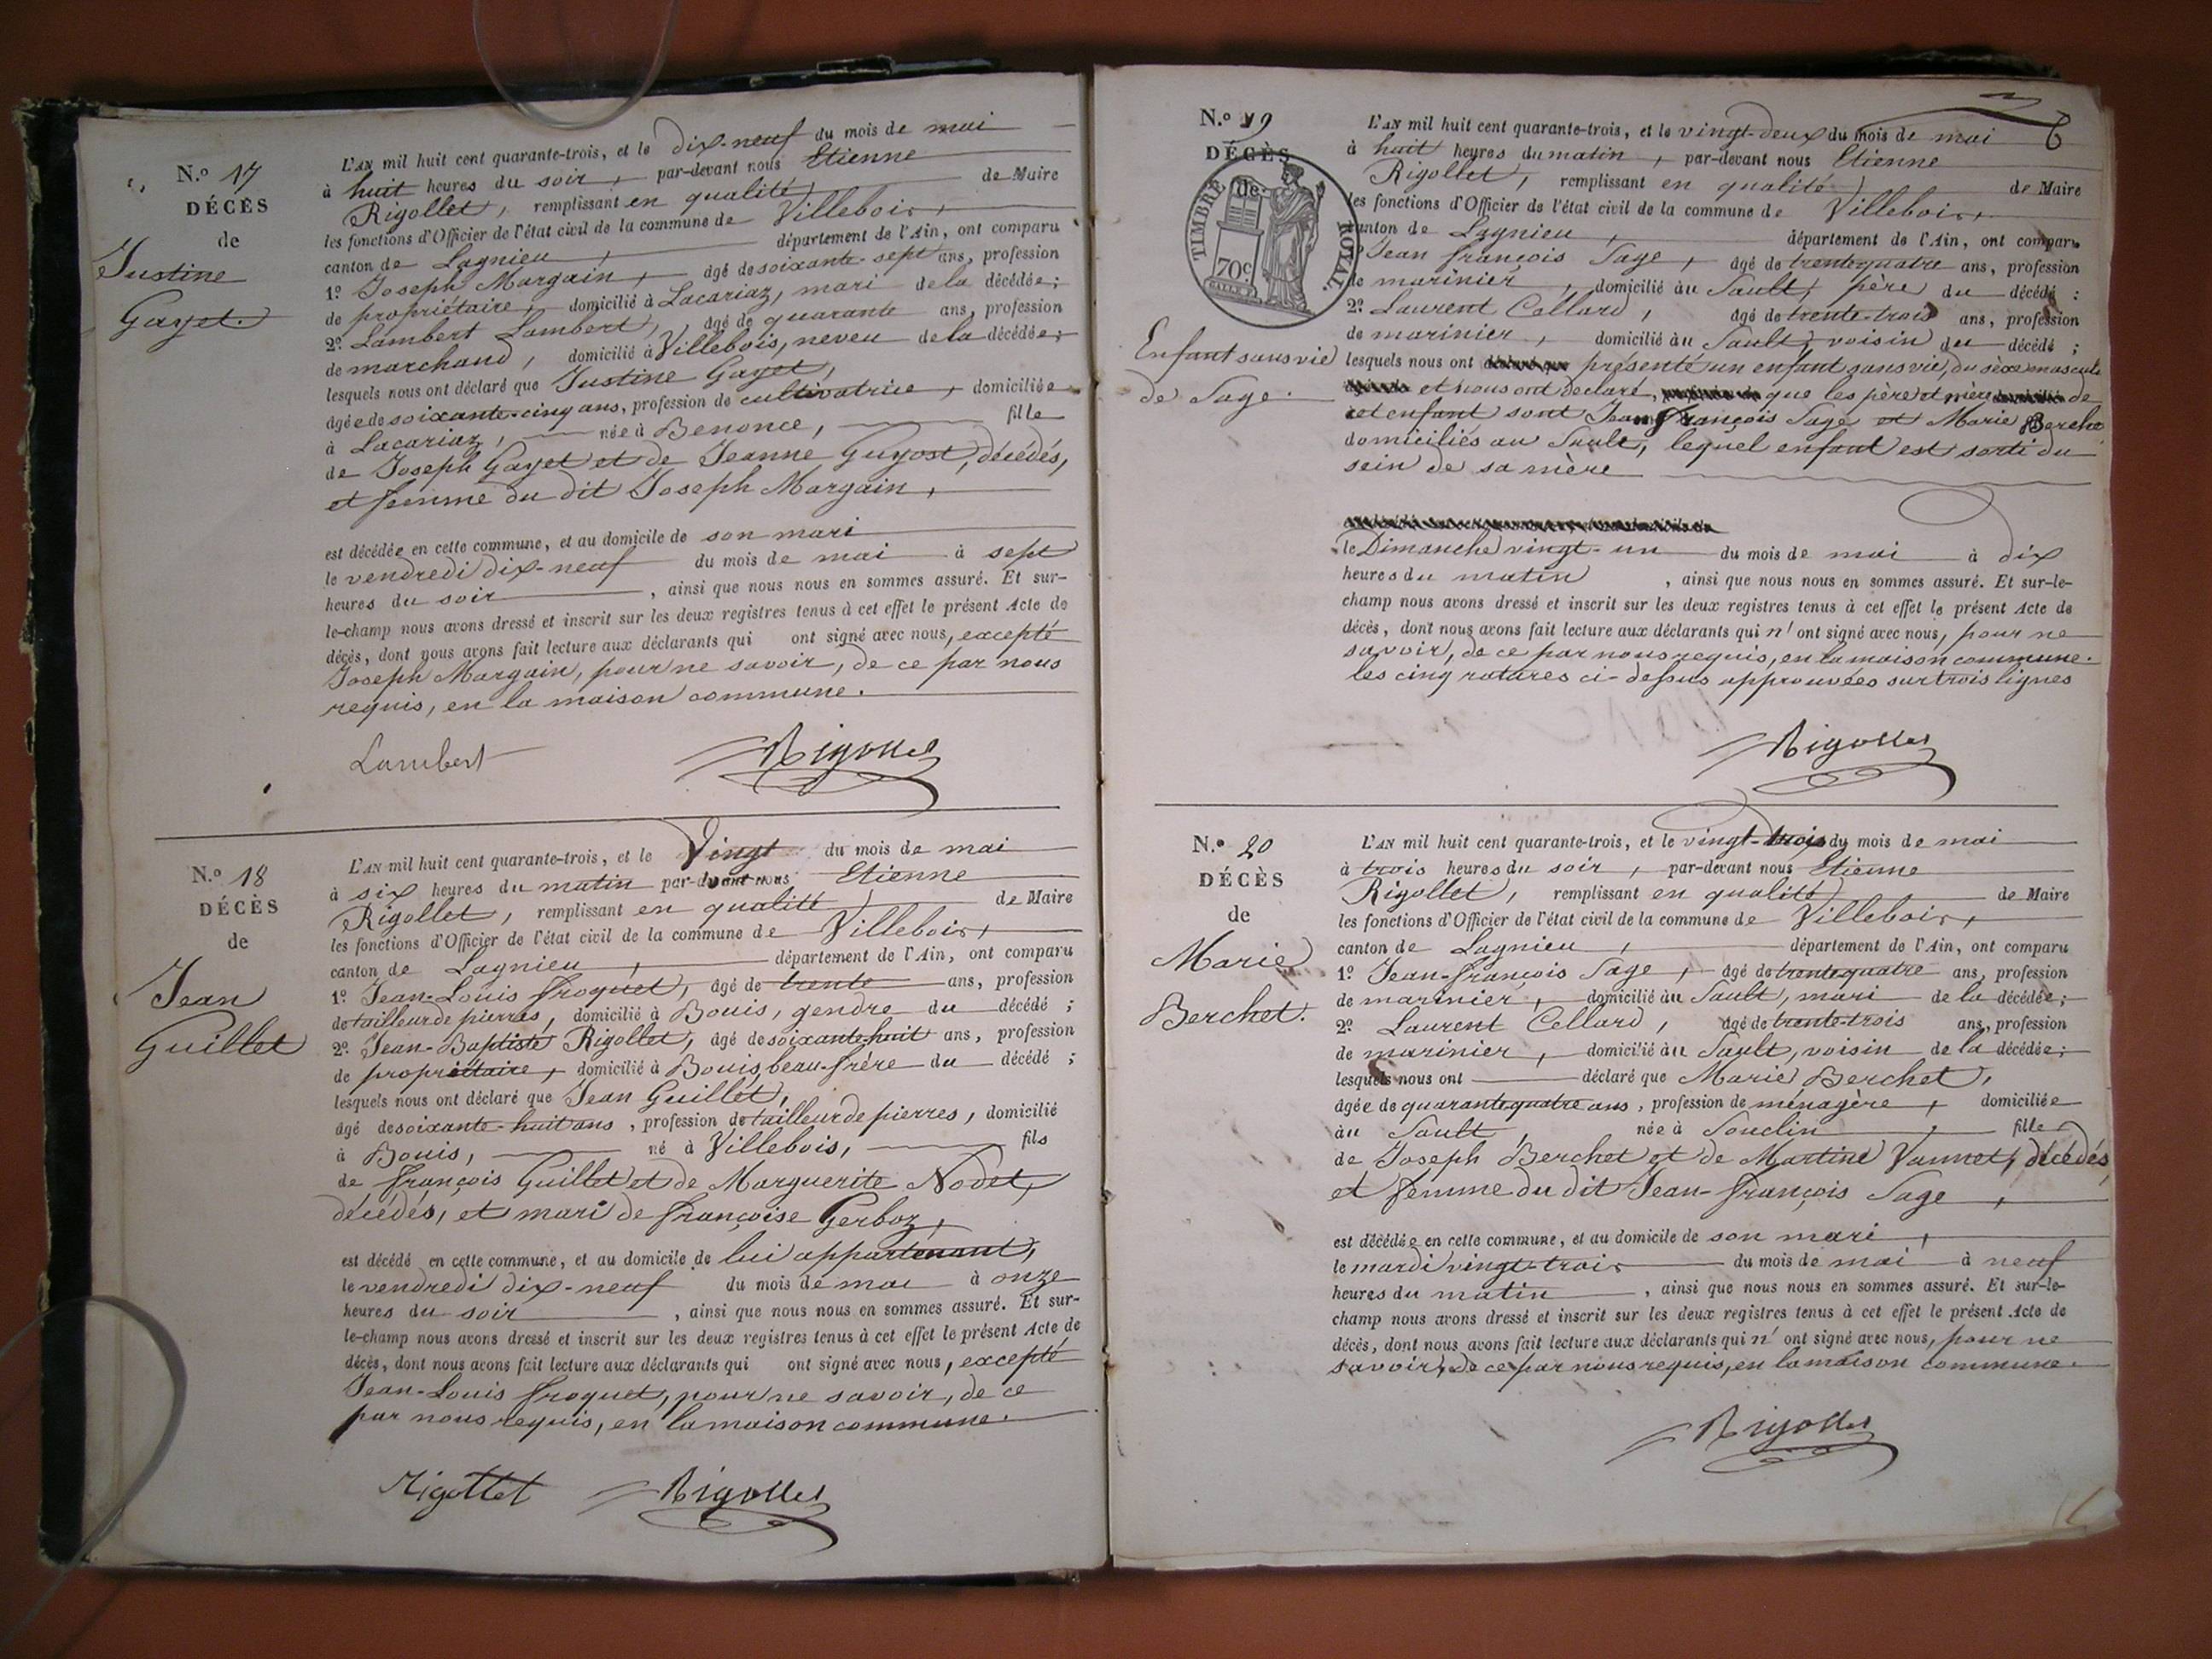 N.º 17
DÉCÈS
de
Justine
Gayet.
L'AN mil huit cent quarante-trois, et le dix-neuf du mois de mai
à huit heures du soir, par-devant nous Etienne
Rigollet, remplissant en qualité de Maire
les fonctions d'Officier de l'état civil de la commune de Villebois,
canton de Lagnieu, département de l'Ain, ont comparu
1º Joseph Margain, âgé de soixante-sept ans, profession
de propriétaire, domicilié à Lacariaz, mari de la décédée;
2º Lambert Lambert, âgé de quarante ans, profession
de marchand, domicilié à Villebois, neveu de la décédée;
lesquels nous ont déclaré que Justine Gayet,
âgée de soixante-cinq ans, profession de cultivatrice, domiciliée
à Lacariaz, née à Benonce, fille
de Joseph Gayet et de Jeanne Guyost, décédés,
et femme du dit Joseph Margain,
est décédée en cette commune, et au domicile de son mari
le vendredi dix-neuf du mois de mai à sept
heures du soir, ainsi que nous nous en sommes assuré. Et sur-
le-champ nous avons dressé et inscrit sur les deux registres tenus à cet effet le présent Acte de
décès, dont nous avons fait lecture aux déclarants qui ont signé avec nous, excepté
Joseph Margain, pour ne savoir, de ce par nous
requis, en la maison commune.
Lambert Rigollet
N.º 18
DÉCÈS
de
Jean
Guillet
L'AN mil huit cent quarante-trois, et le Vingt du mois de mai
à six heures du matin par-devant nous Etienne
Rigollet, remplissant en qualité de Maire
les fonctions d'Officier de l'état civil de la commune de Villebois,
canton de Lagnieu, département de l'Ain, ont comparu
1º Jean-Louis Froquet, âgé de trente ans, profession
de tailleur de pierres, domicilié à Bouis, gendre du décédé;
2º Jean-Baptiste Rigollet, âgé de soixante-huit ans, profession
de propriétaire, domicilié à Bouis, beau-frère du décédé;
lesquels nous ont déclaré que Jean Guillet,
âgé de soixante-huit ans, profession de tailleur de pierres, domicilié
à Bouis, né à Villebois, fils
de François Guillet et de Marguerite Nodet,
décédés, et mari de Françoise Gerboz,
est décédé en cette commune, et au domicile de lui appartenant,
le vendredi dix-neuf du mois de mai à onze
heures du soir, ainsi que nous nous en sommes assuré. Et sur-
le-champ nous avons dressé et inscrit sur les deux registres tenus à cet effet le présent Acte de
décès, dont nous avons fait lecture aux déclarants qui ont signé avec nous, excepté
Jean-Louis Froquet, pour ne savoir, de ce
par nous requis, en la maison commune.
Rigollet Rigollet
6
N.º 19
DÉCÈS
de
TIMBRE ROYAL
70c
Enfant sans vie
de Sage.
L'AN mil huit cent quarante-trois, et le vingt-deux du mois de mai
à huit heures du matin, par-devant nous Etienne
Rigollet, remplissant en qualité de Maire
les fonctions d'Officier de l'état civil de la commune de Villebois,
canton de Lagnieu, département de l'Ain, ont comparu
1º Jean François Sage, âgé de trente quatre ans, profession
de marinier, domicilié au Sault, père du décédé;
2º Laurent Cellard, âgé de trente-trois ans, profession
de marinier, domicilié au Sault, voisin du décédé;
lesquels nous ont présenté un enfant sans vie, du sèxe masculin
et nous ont déclaré, que les père et mère de
cet enfant sont Jean François Sage et Marie Berchet
domiciliés au Sault, lequel enfant est sorti du
sein de sa mère
le Dimanche vingt-un du mois de mai à dix
heures du matin, ainsi que nous nous en sommes assuré. Et sur-le-
champ nous avons dressé et inscrit sur les deux registres tenus à cet effet le présent Acte de
décès, dont nous avons fait lecture aux déclarants qui n'ont signé avec nous, pour ne
savoir, de ce par nous requis, en la maison commune.
les cinq ratures ci-dessus approuvées sur trois lignes
Rigollet
N.º 20
DÉCÈS
de
Marie
Berchet.
L'AN mil huit cent quarante-trois, et le vingt-trois du mois de mai
à trois heures du soir, par-devant nous Etienne
Rigollet, remplissant en qualité de Maire
les fonctions d'Officier de l'état civil de la commune de Villebois,
canton de Lagnieu, département de l'Ain, ont comparu
1º Jean-François Sage, âgé de trente quatre ans, profession
de marinier, domicilié au Sault, mari de la décédée;
2º Laurent Cellard, âgé de trente-trois ans, profession
de marinier, domicilié au Sault, voisin de la décédée;
lesquels nous ont déclaré que Marie Berchet,
âgée de quarante quatre ans, profession de ménagère, domiciliée
au Sault, née à Souclin, fille
de Joseph Berchet et de Martine Vannet, décédés,
et femme du dit Jean-François Sage,
est décédée en cette commune, et au domicile de son mari,
le mardi vingt-trois du mois de mai à neuf
heures du matin, ainsi que nous nous en sommes assuré. Et sur-le-
champ nous avons dressé et inscrit sur les deux registres tenus à cet effet le présent Acte de
décès, dont nous avons fait lecture aux déclarants qui n'ont signé avec nous, pour ne
savoir, de ce par nous requis, en la maison commune.
Rigollet